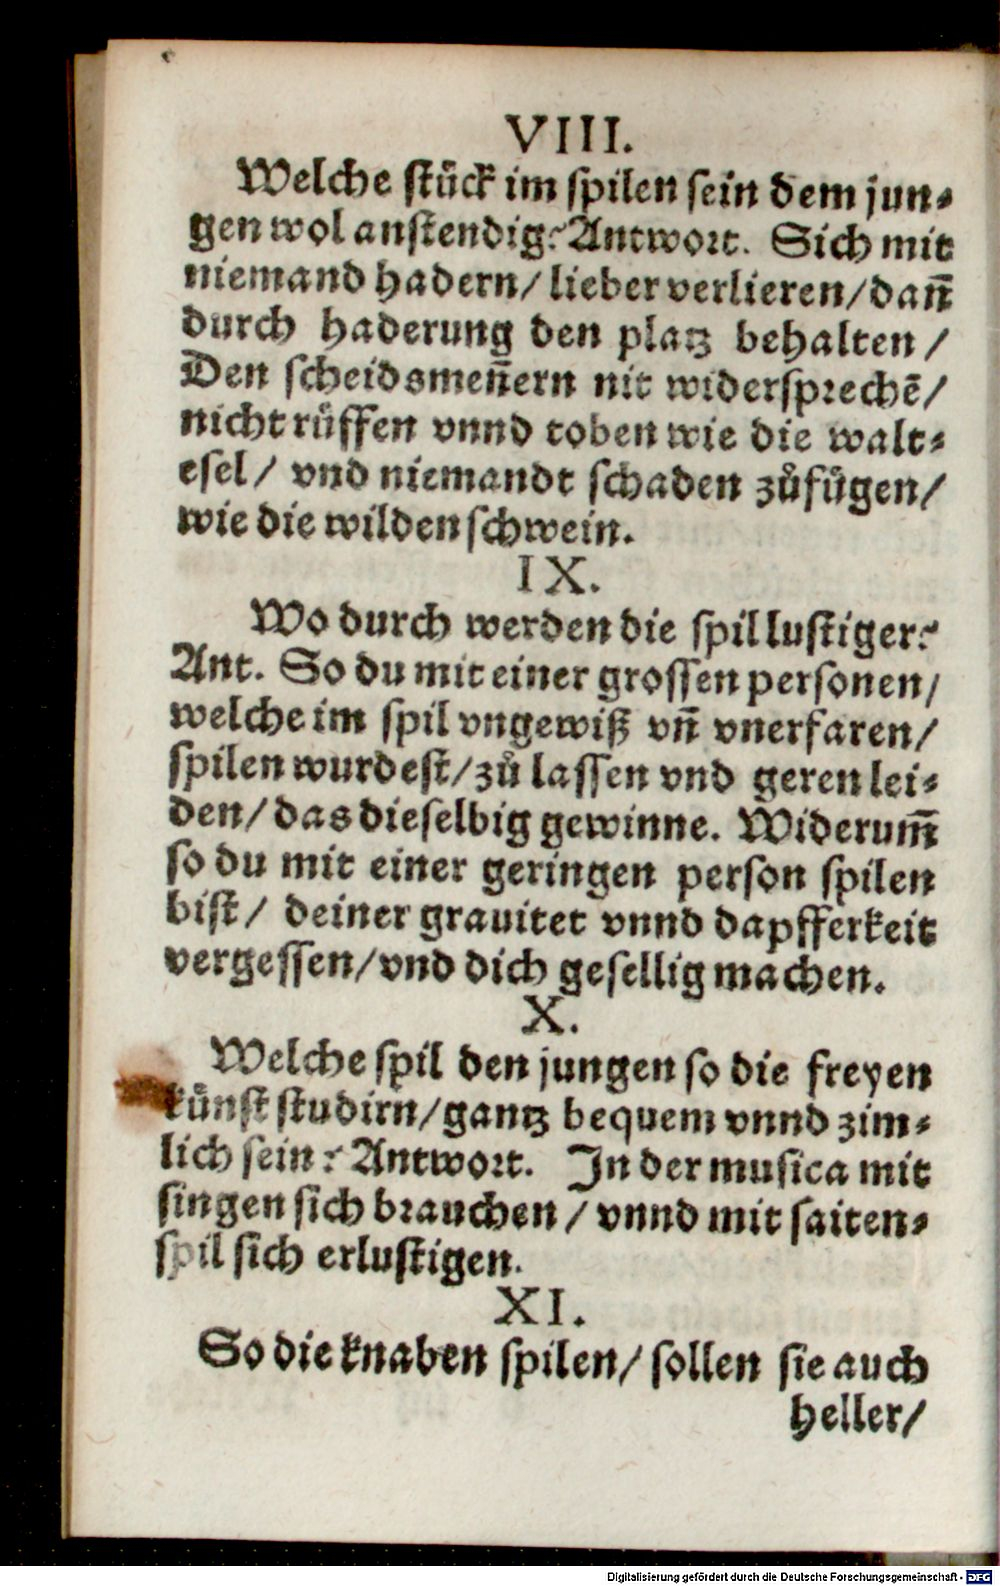 VIII.
Welche stück im spilen sein dem jun-
gen wol anstendig? Antwort. Sich mit
niemand hadern/ lieber verlieren/ dañ
durch haderung den platz behalten/
Den scheidsmeñern nit widersprechẽ/
nicht rüffen vnnd toben wie die walt-
esel/ vnd niemandt schaden zůfügen/
wie die wilden schwein.
IX.
Wo durch werden die spil lustiger?
Ant. So du mit einer grossen personen/
welche im spil vngewiß vñ vnerfaren/
spilen wurdest/ zů lassen vnd geren lei-
den/ das dieselbig gewinne. Widerum̃
so du mit einer geringen person spilen
bist/ deiner grauitet vnnd dapfferkeit
vergessen/ vnd dich gesellig machen.
X.
Welche spil den jungen so die freyen
künst studirn/ gantz bequem vnnd zim-
lich sein? Antwort. In der musica mit
singen sich brauchen/ vnnd mit saiten-
spil sich erlustigen.
XI.
So die knaben spilen/ sollen sie auch
heller/
Digitalisierung gefördert durch die Deutsche Forschungsgemeinschaft - DFG